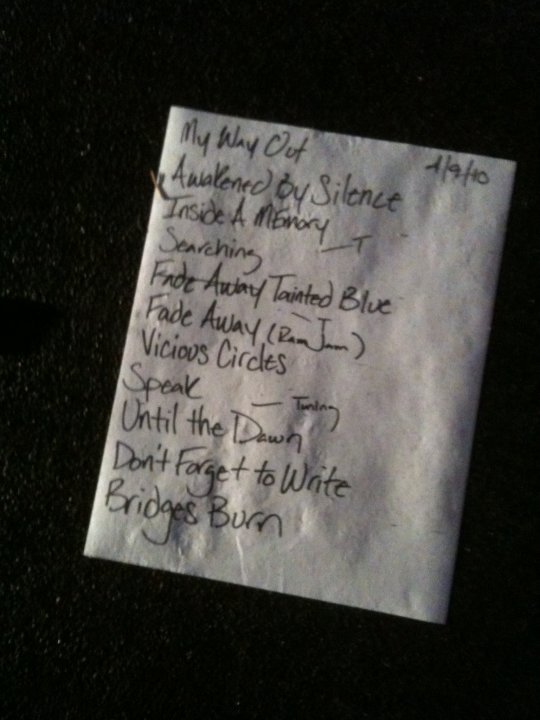 My Way Out
4/9/10
Awakened By Silence
Inside A Memory
Searching — T
Fade Away Tainted Blue
Fade Away (Ram Jam)
Vicious Circles
Speak
— Tuning
Until the Dawn
Don't Forget to Write
Bridges Burn